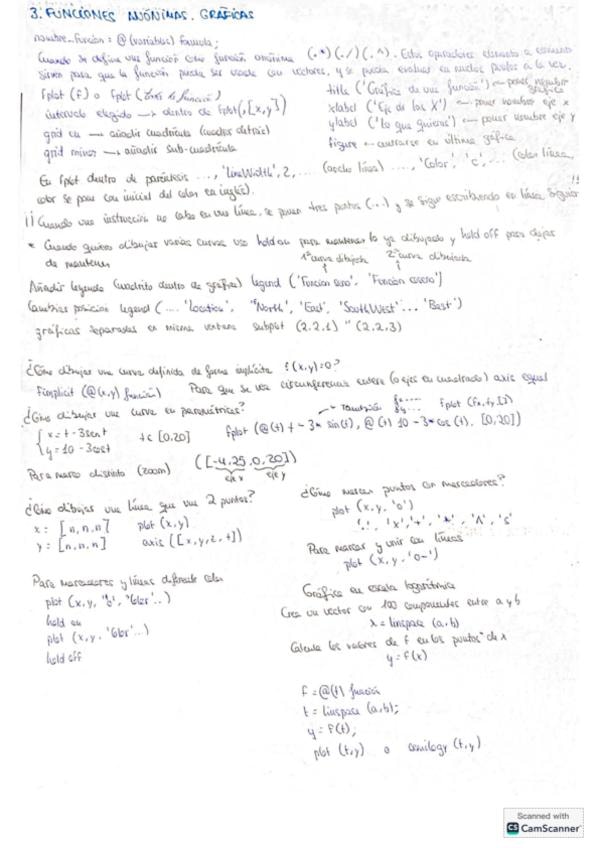 3. FUNCIONES ANÓNIMAS. GRÁFICAS
nombre_función = @ (variables) formula;
Cuando se define una función como función anónima (.*) (./) (.^). Estos operadores elemento a elemento
sirven para que la función pueda ser usada con vectores, y se pueda evaluar en muchos puntos a la vez.
fplot (f) o fplot (
intervalo elegido → dentro de fplot(,[x,y])
grid on → añadir cuadrícula (cuadros detrás)
grid minor → añadir sub-cuadrícula
title ('Gráfica de una función') ← poner nombre gráfica
xlabel ('Eje de las X') ← poner nombre eje x
ylabel ('Lo que quieras') ← poner nombre eje y
figure ← centrarse en última gráfica
En fplot dentro de paréntesis ..., 'LineWidth', 2, ... (ancho línea) ..., 'Color', 'c', ... (color línea,
color se pone con inicial del color en inglés).
!! Cuando una instrucción no cabe en una línea, se ponen tres puntos (...) y se sigue escribiendo en línea siguien !!
* Cuando quiero dibujar varias curvas uso hold on para mantener lo ya dibujado y hold off para dejar
de mantener
1ª curva dibujada 2ª curva dibujada
Añadir leyenda (cuadrito dentro de gráfica) legend ('Función seno', 'Función coseno')
Cambias posición legend (... 'Location', 'North', 'East', 'SouthWest' ... 'Best')
gráficas separadas en misma ventana subplot (2,2,1) " (2,2,3)
¿Cómo dibujar una curva definida de forma implícita f(x,y)=0?
fimplicit (@(x,y) función) Para que se vea circunferencia entera (o ejes en cuadrado) axis equal
¿Cómo dibujar una curva en paramétricas?
→ También fplot (fx, fy, [])
x = t - 3sent
y = 10 - 3cost
t ∈ [0,20]
fplot (@(t) t - 3* sin(t), @(t) 10 - 3*cos (t), [0,20])
Para marco distinto (zoom) ([-4,25,0,20])
eje x eje y
¿Cómo dibujas una línea que une 2 puntos?
x = [n,n,n] plot (x,y)
y = [n,n,n] axis ([x,y,z,t])
Para marcadores y líneas diferente color
plot (x,y, 'o', 'Color'..)
hold on
plot (x,y, 'Color'...)
hold off
¿Cómo marcar puntos con marcadores?
plot (x,y, 'o')
'.', 'x', '+', '*', '^', 's'
Para marcar y unir con líneas
plot (x,y, 'o-')
Gráfica en escala logarítmica
Crea un vector con 100 componentes entre a y b
x = linspace (a,b)
Calcula los valores de f en los puntos de x
y = f(x)
f = @(t) función
t = linspace (a,b);
y = f(t);
plot (t,y) o semilogy (t,y)
Scanned with
CS CamScanner